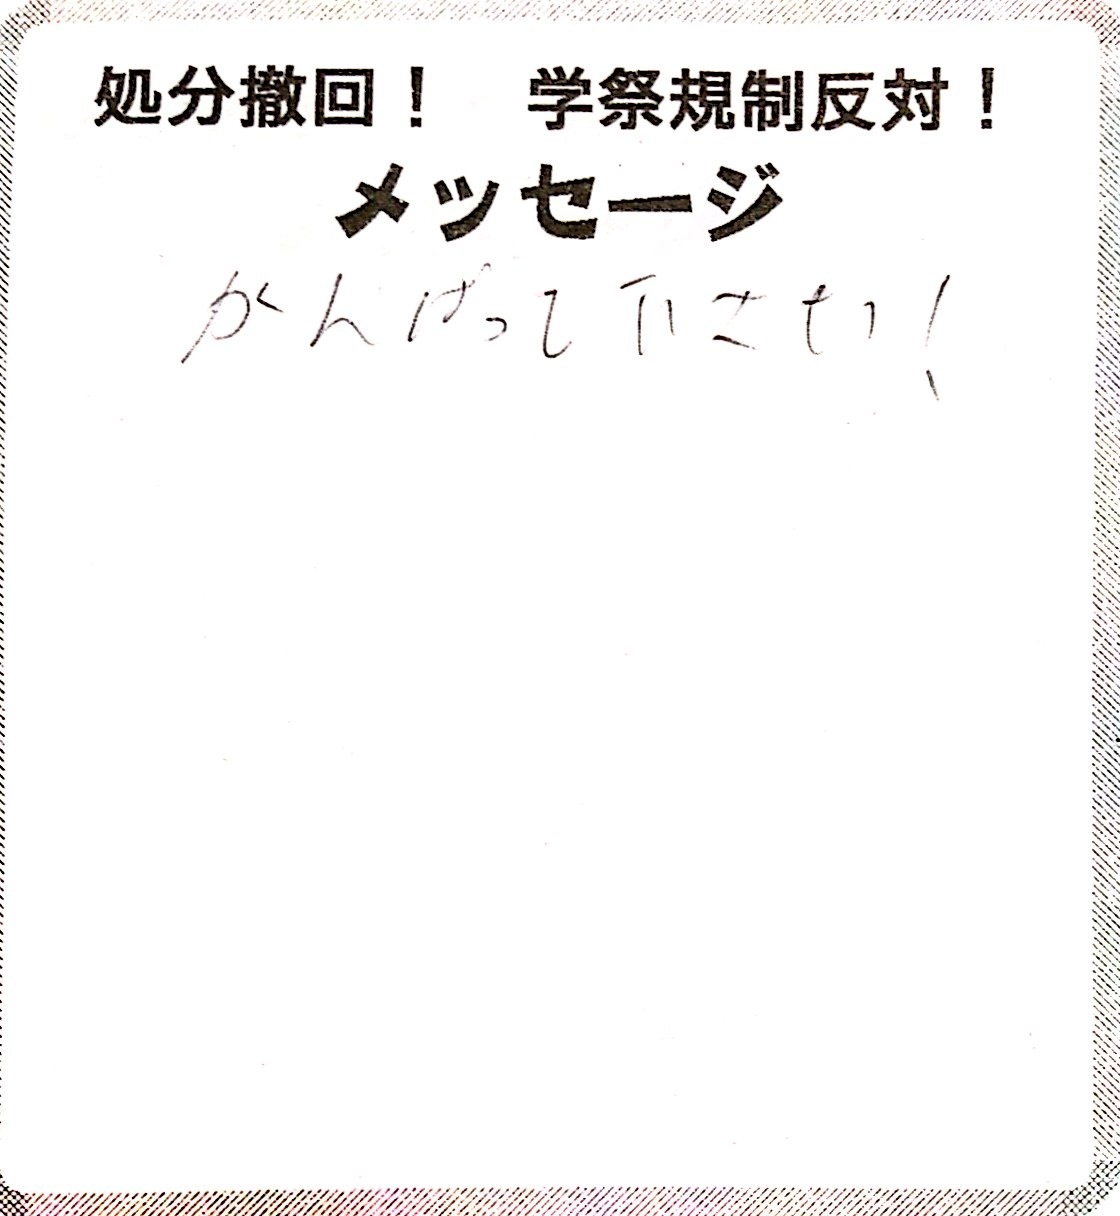 処分撤回！　学祭規制反対！
メッセージ
がんばって下さい！